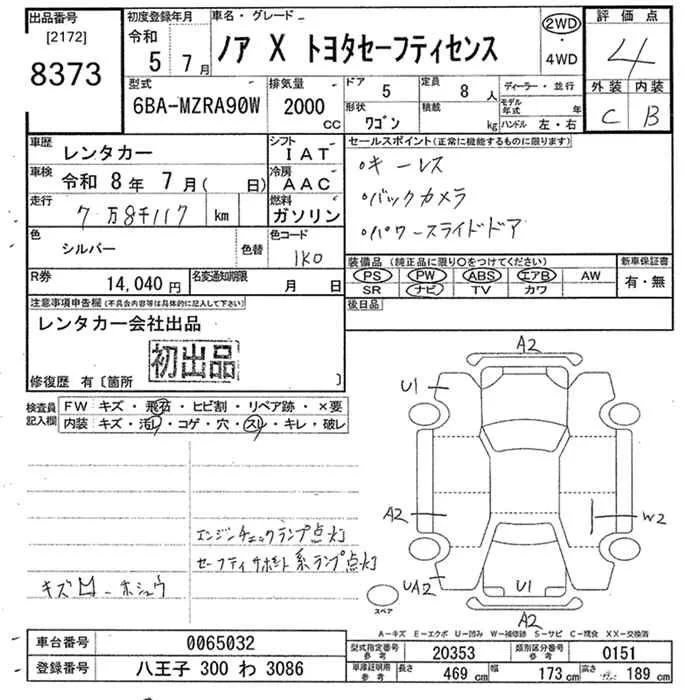 出品番号
[2172]
8373
初度登録年月
令和
5 7月
車名・グレード
ノア X トヨタセーフティセンス
2WD
・
4WD
評価点
4
型式
6BA-MZRA90W
排気量
2000
CC
ドア
5
定員
8 人
形状
ワゴン
積載
kg
ディーラー・並行
モデル年式 年
ハンドル 左・右
外装 内装
C B
車歴
レンタカー
シフト
IAT
車検
令和 8年 7月( 日)
冷房
AAC
走行
7万8千117 km
燃料
ガソリン
色
シルバー
色替
色コード
1K0
R券
14,040 円
名変通知期限
月 日
セールスポイント(正常に機能するものに限ります)
・キーレス
・バックカメラ
・パワースライドドア
装備品 (純正品に限り〇をつけてください)
PS PW ABS エアB AW
SR ナビ TV カワ
新車保証書
有・無
後日品
注意事項申告欄(不具合内容等は具体的に記入して下さい)
レンタカー会社出品
初出品
修復歴 有〔箇所 〕
検査員
記入欄
FW キズ・飛石・ヒビ割・リペア跡・×要
内装 キズ・汚レ・コゲ・穴・スレ・キレ・破レ
エンジンチェックランプ点灯
セーフティサポート系ランプ点灯
A2
U1
A2
W2
UA2
U1
A2
スペア
A-キズ E-エクボ U-凹み W-補修跡 S-サビ C-腐食 XX-交換済
車台番号
0065032
登録番号
八王子 300 わ 3086
型式指定番号
参考
20353
類別区分番号
参考
0151
車庫証明用
参考
長さ
469 cm
幅
173 cm
高さ
189 cm